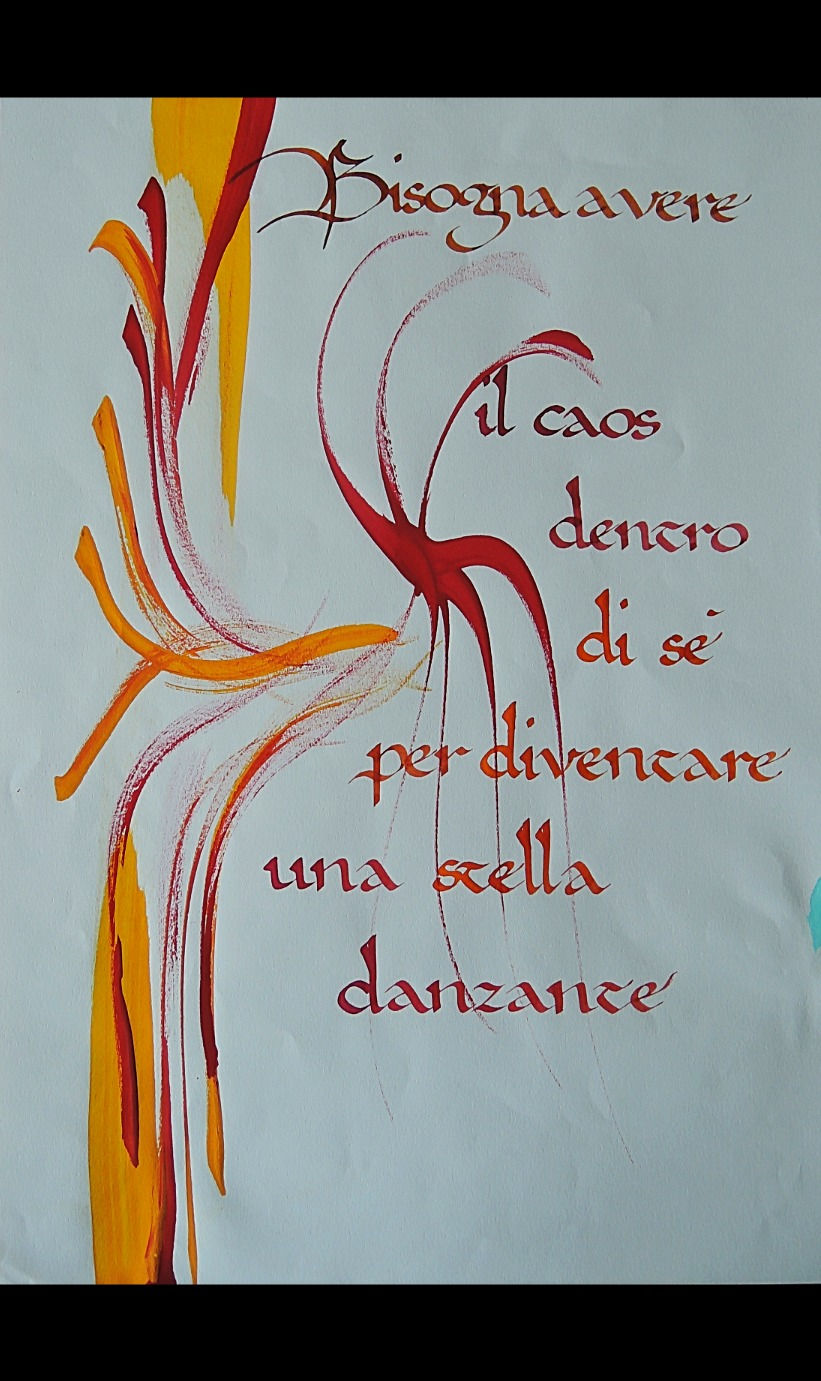 Bisogna avere
il caos
dentro
di sé
per diventare
una stella
danzante